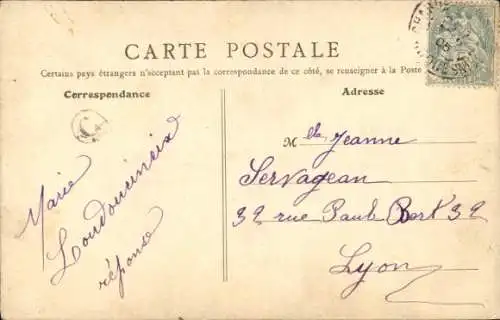 CARTE POSTALE
Certains pays étrangers n'acceptant pas la correspondance de ce côté, se renseigner à la Poste
Correspondance
Adresse
C
Marie
réponse
Mlle Jeanne
Servagean
32 rue Paul Bert 32
Lyon